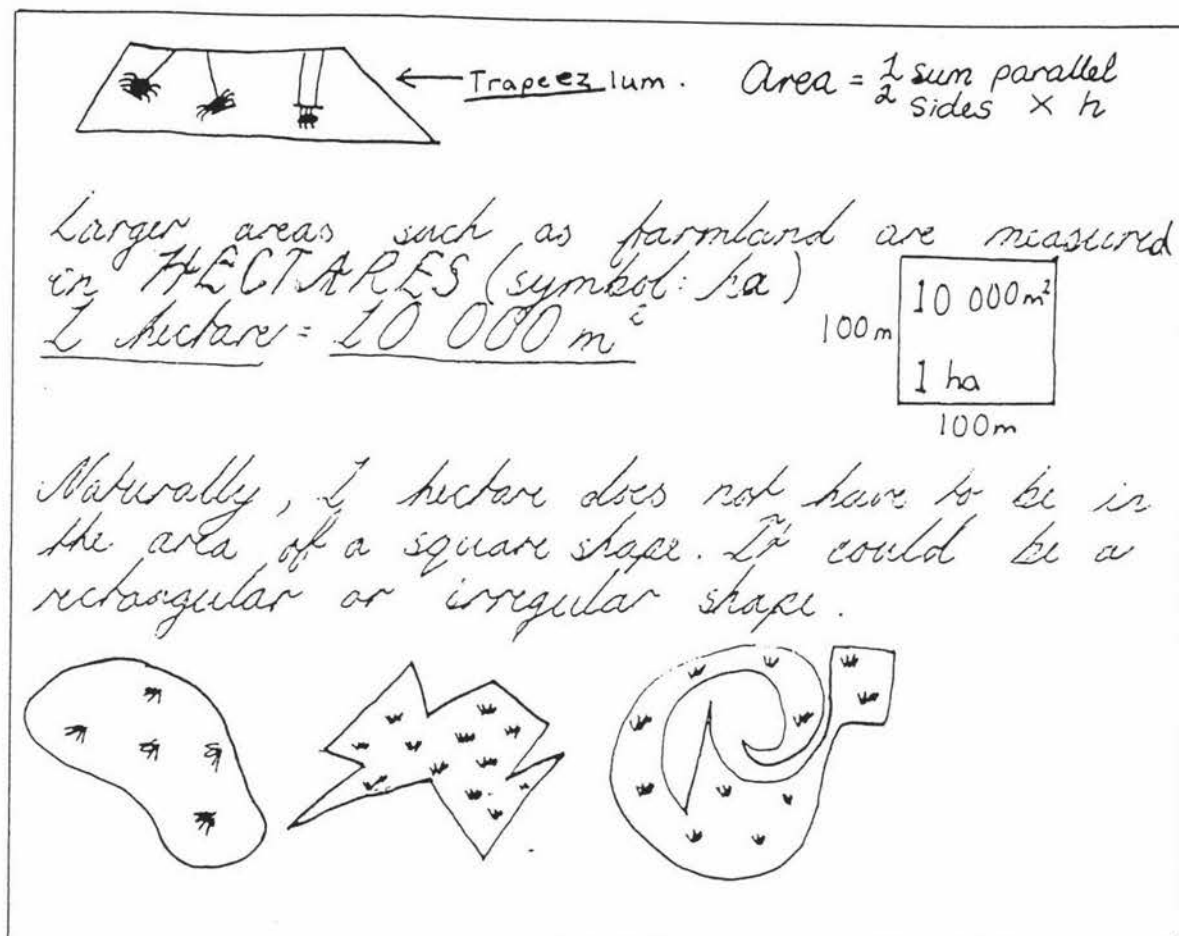 Trapeez ium. Area = 1/2 sum parallel
sides × h
Larger areas such as farmland are measured
in HECTARES (symbol: ha)
1 hectare = 10 000 m²
10 000 m²
100 m
1 ha
100 m
Naturally, 1 hectare does not have to be in
the area of a square shape. It could be a
rectangular or irregular shape.